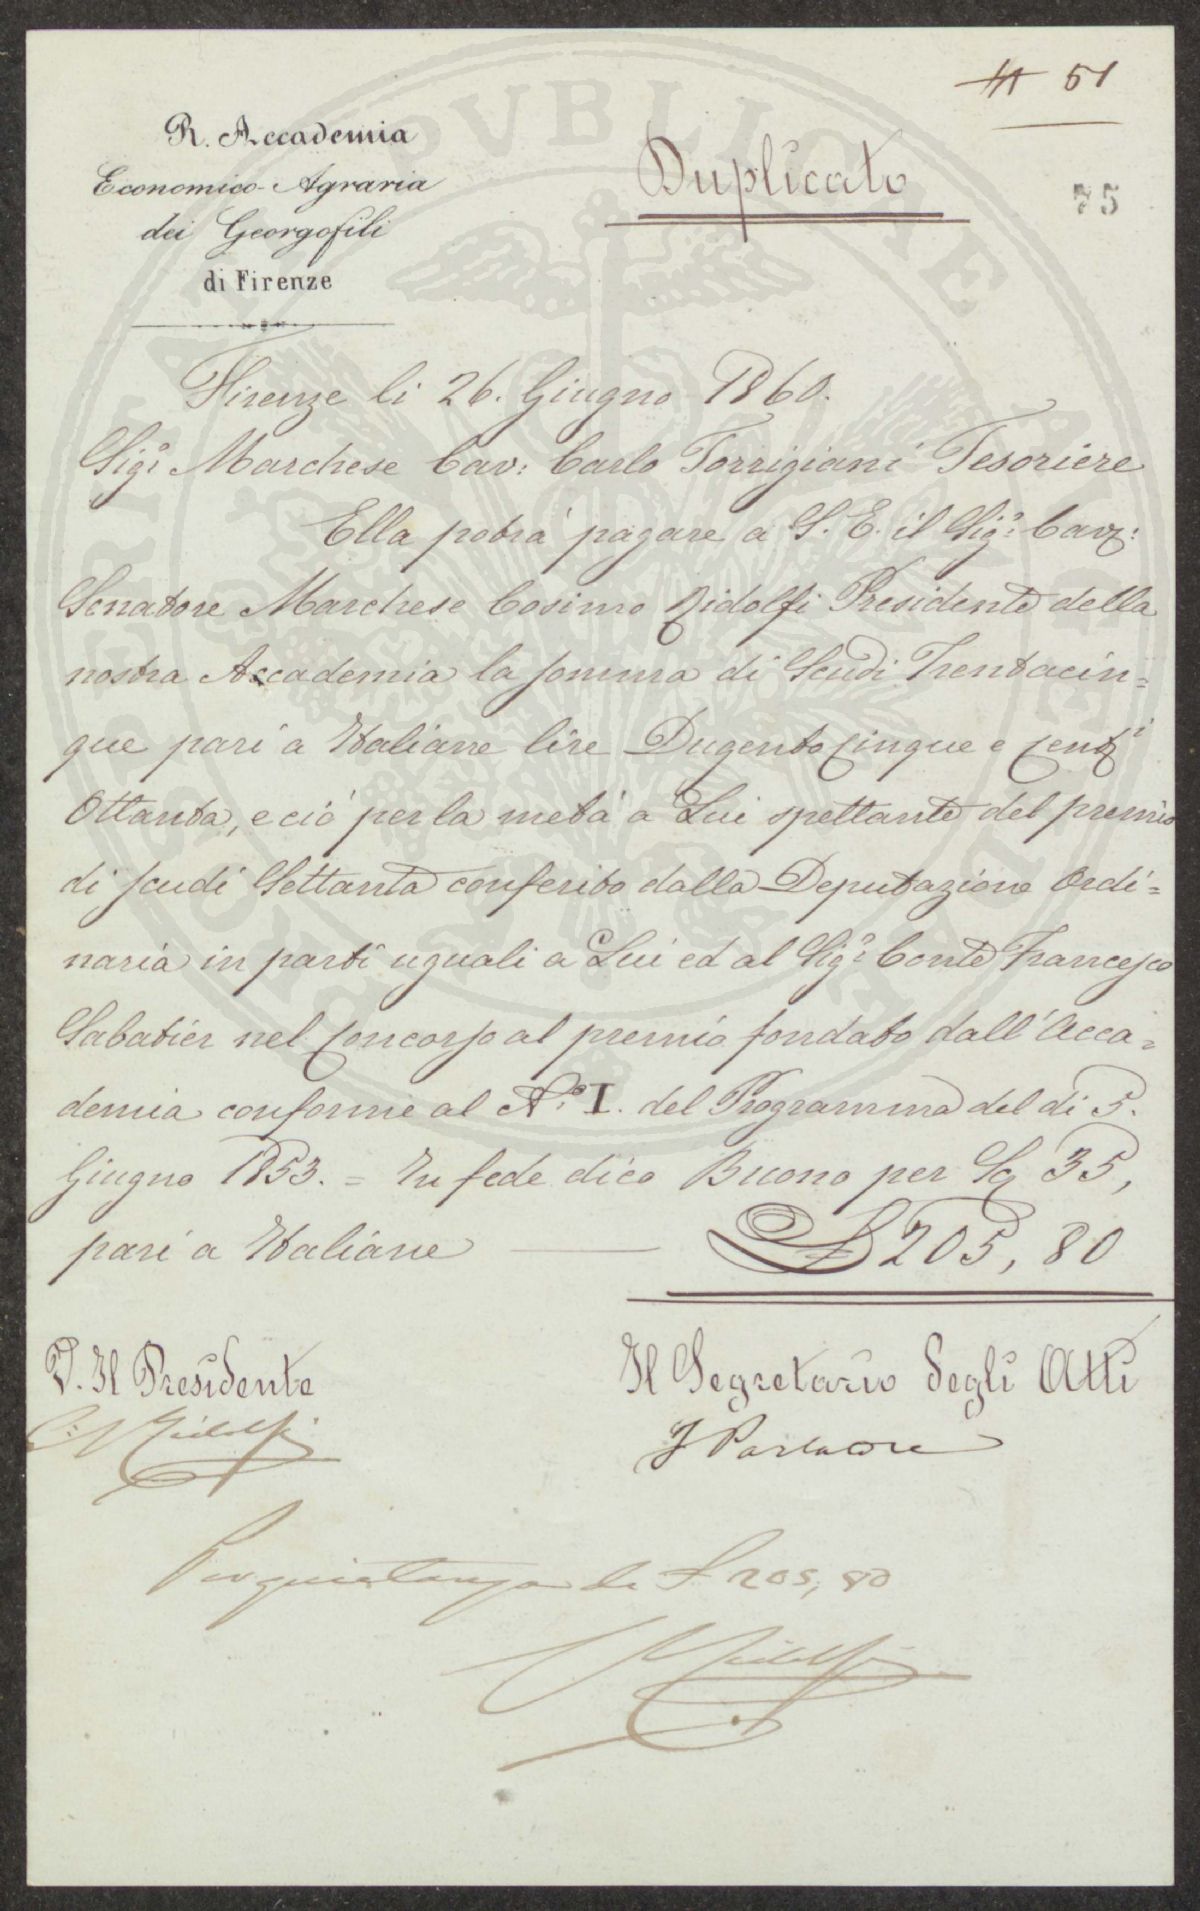 51
R. Accademia
Economico-Agraria
dei Georgofili
di Firenze
Duplicato
75
Firenze li 26. Giugno 1860.
Sigr. Marchese Cav: Carlo Torrigiani Tesoriere
Ella potrà pagare a S. E. il Sigr. Cav:
Senatore Marchese Cosimo Ridolfi Presidente della
nostra Accademia la somma di Scudi Trentacin=
que pari a Italiane lire Dugentocinque e Centi
Ottanta, e ciò per la metà a Lui spettante del premio
di scudi Settanta conferito dalla Deputazione Ordi=
naria in parti uguali a Lui ed al Sigr. Conte Francesco
Sabatier nel Concorso al premio fondato dall'Acca=
demia conforme al N.o I. del Programma del di 5.
Giugno 1853. = In fede dico Buono per Sc. 35,
pari a Italiane — £ 205, 80
V. Il Presidente
C. Ridolfi
Il Segretario degli Atti
Per quietanza di £ 205, 80
C. Ridolfi